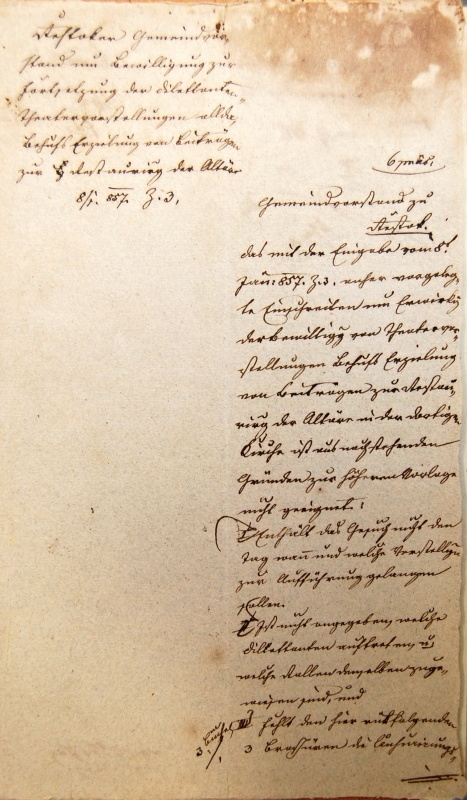 Aestoker Gemeindvor-
stand um Bewilligung zur
Fortsetzung der Dilettanten-
theatervorstellungen allda,
Behufs Erzielung von Beiträgen
zur Restaurirg der Altäre
8/1. 857. Z. 3.
Gemeindvorstand zu
Aestok.
Das mit der Eingabe vom 8t.
Jän: 857. Z. 3. anher vorgeleg-
te Einschreiten um Erwirkg
der Bewilligg von Theatervor-
stellungen Behufs Erzielung
von Beiträgen zur Restau-
rirg der Altäre in der dortigen
Kirche ist aus nachstehenden
Gründen zur höheren Vorlage
nicht geeignet:
Enthält das Gesuch nicht den
Tag wann und welche Vorstellgn
zur Aufführung gelangen
sollen.
Ist nicht angegeben, welche
Dilettanten auftreten, u.
welche Rollen denselben zuge-
wiesen sind, und
III fehlt den hier rückfolgenden
3 Broschüren die Censurirungs-